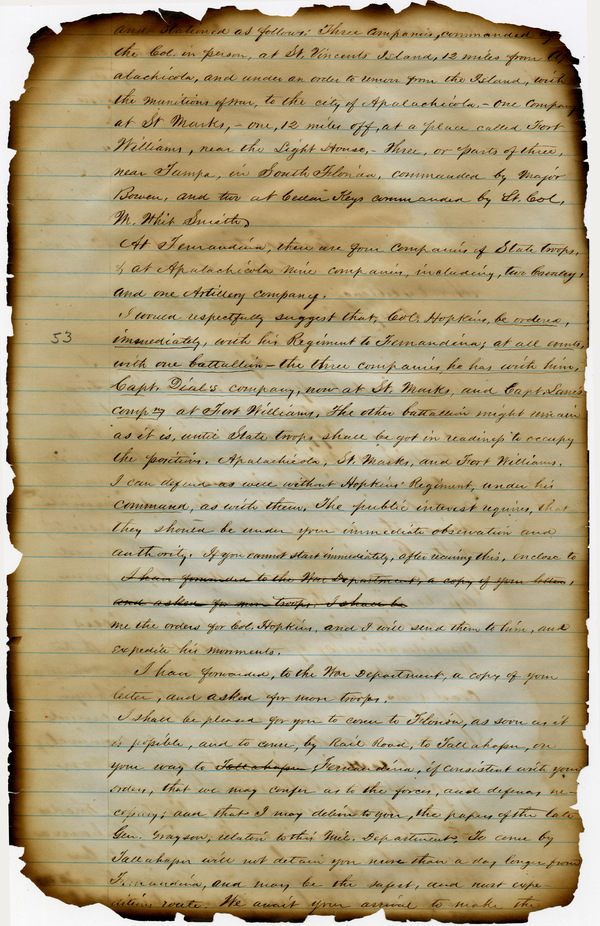 and stationed as follows: Three Companies, commanded by
the Col. in person, at St. Vincents Island, 12 miles from Ap-
alachicola, and under an order to remove from the Island, with
the munitions of war, to the city of Apalachicola, - One Company
at St Marks, - one, 12 miles off, at a place called Fort
Williams, near the Light House, - Three, or parts of three,
near Tampa, in South Florida, commanded by Major
Bowen, and two at Cedar Keys commanded by Lt. Col,
M. Whit Smith,
At Fernandina, there are four Companies of State troops,
& at Apalachicola nine companies, including, two Cavalry,
and one Artillery company.
I would respectfully suggest that, Col. Hopkins, be ordered,
53
immediately, with his Regiment to Fernandina; at all events,
with one battallion - the three companies he has with him,
Capt. Dial's company, now at St. Marks, and Capt.
compy at Fort Williams, The other battallion might remain
as it is, until State troops shall be got in readiness to occupy
the positions. Apalachicola, St. Marks, and Fort Williams.
I can defend as well without Hopkins' Regiment, under his
command, as with them, The public interest requires, that
they should be under your immediate observation and
authority. If you cannot start immediately, after receiving this, enclose to
I have forwarded to the War Department, a copy of your letter,
and asked for more troops. I shall be
me the orders for Col. Hopkins, and I will send them to him, and
expedite his movements.
I have forwarded, to the War Department, a copy of your
letter, and asked for more troops.
I shall be pleased for you to come to Florida, as soon as it
is possible, and to come, by Rail Road, to Tallahassee, on
your way to Tallahassee Fernandina, if consistent with your
orders, that we may confer as to the forces, and defenses ne-
cessary; and that I may deliver to you, the papers of the late
Gen. Grayson, relative to this Mil. Department, To come by
Tallahassee will not detain you more than a day longer from
Fernandina, and may be the safest, and most expe-
ditious route. We await your arrival to make the